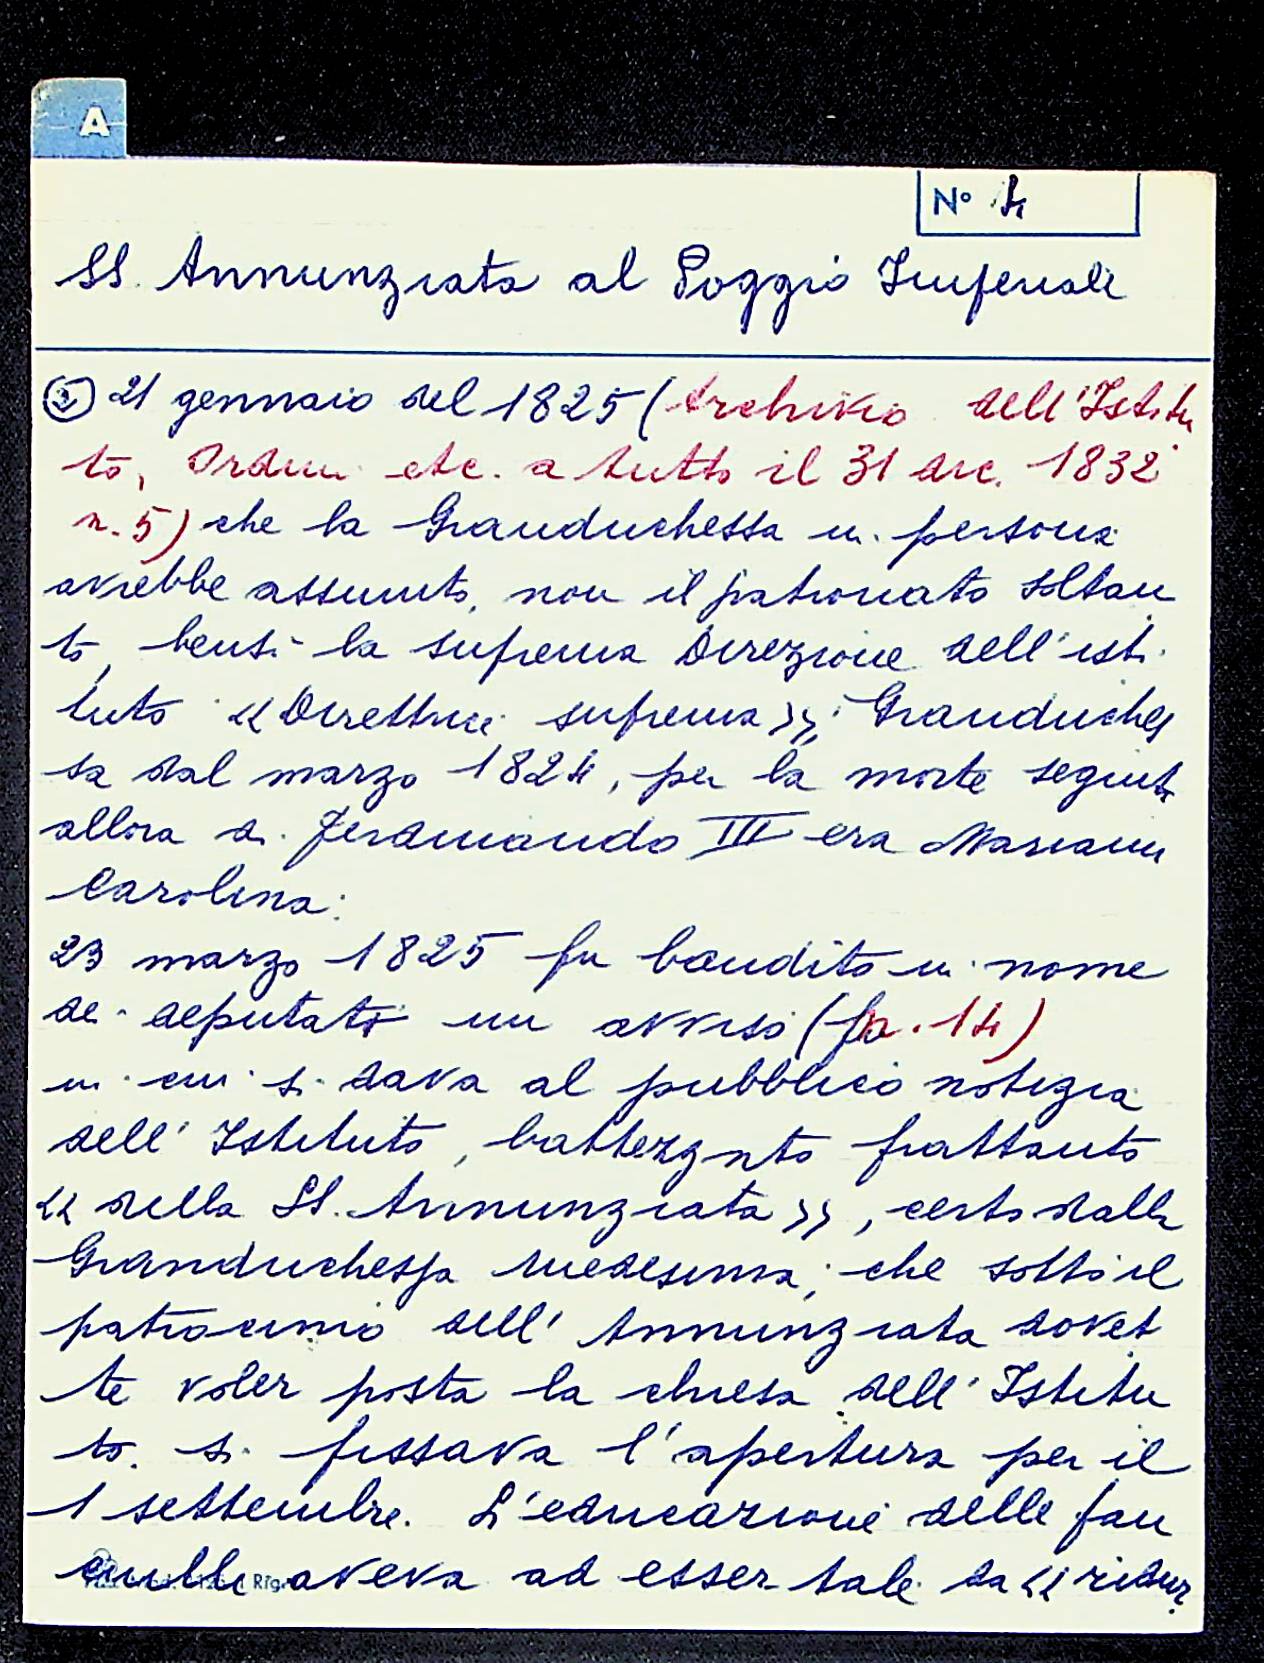 A
N° 4
SS. Annunziata al Poggio Imperiale
② 21 gennaio del 1825 (Archivio dell'Istitu
to, Ordini etc. a tutto il 31 dic. 1832
n. 5) che la Granduchessa in persona
avrebbe assunto, non il patronato soltan
to, bensì la suprema Direzione dell'isti
tuto «Direttrice suprema»; Granduches
sa dal marzo 1824, per la morte seguita
allora di Ferdinando III era Marianna
Carolina:
23 marzo 1825 fu bandito in nome
dei deputati un avviso (fa. 14)
in cui si dava al pubblico notizia
dell'Istituto, battezzato frattanto
«della SS. Annunziata», certo dalla
Granduchessa medesima; che sotto il
patrocinio dell'Annunziata dovet
te voler posta la chiesa dell'Istitu
to. si fissava l'apertura per il
1 settembre. L'educazione delle fan
ciulle aveva ad esser tale da «ridur